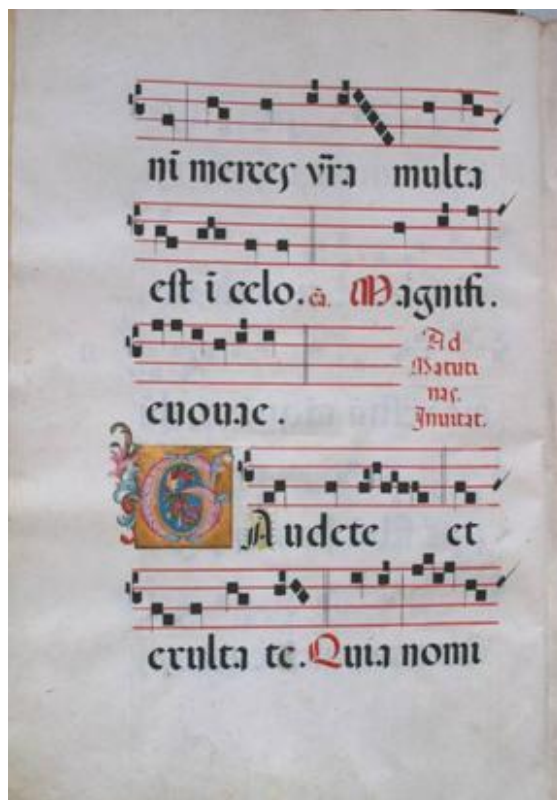 nī merces vr̄a multa
est ī celo. ca̅. Magnifi.
euouae.
Ad
Matuti
nas.
Inuitat.
GAudete et
exulta te. Quia nomi